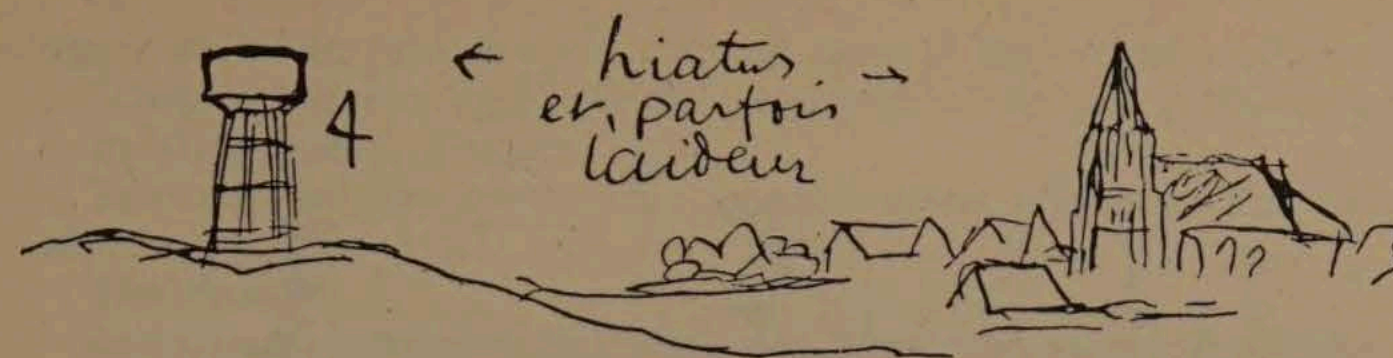 ← hiatus. →
et, parfois
laideur
4